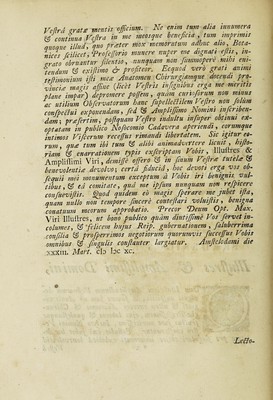 Vestrâ gratæ mentis officium. Ne enim tum alia innumera
& continua Vestra in me meosque beneficia, tum imprimis
quoque illud, quo præter mox membratum adhuc alio, Bota-
nices scilicet, Professoris munere nuper me dignati estis, in-
grato obruantur silentio, nunquam non summopere mihi eni-
tendum & existimo & profiteor. Equod verò grati animi
testimonium isti mea Anatomen Chirurgiamque docendi pro-
vincia magis assine (licet Vestris insignibus erga me meritis
plane impar) depromere possem, quam curiosarum non minus
ac utilium Observatorum hanc supellectilem Vestro non solùm
conspectui exponendam, sed & amplissimo Nomini inscriben-
dam; præsertim, postquam Vestro indultu insuper obtinui ex-
optatam in publico Nosocomio Cadavera aperiendi, eorumque
intimos Viscerum recessus rimandi libertatem. Sic igitur eo-
rum, quæ tum ibi tum & alibi animadvertere licuit, histo-
riam & enarrationem typis exscriptam Vobis, Illustres &
Amplissimi Viri, demisse offero & in sinum Vestræ tutelæ &
benevolentiæ devolvo; certâ fiduciâ, hoc devoti erga vos ob-
sequii mei monumentum exceptum à Vobis iri benignis vul-
tibus, & eâ comitate, quâ me ipsum nunquam non respicere
consuevistis. Quod quidem eò magis sperare me jubet ista,
quam nullo non tempore sincerè contestari voluistis, benigna
conatuum meorum approbatio. Precor Deum Opt. Max.
Viri Illustres, ut bono publico quàm diutissimè Vos servet in-
columes, & felicem hujus Reip. gubernationem, saluberrima
consilia & prosperrimos negotiorum quorumvis successus Vobis
omnibus & singulis constanter largiatur. Amstelodami die
xxxiii. Mart. cIɔ Iɔc xc.
Lecto-